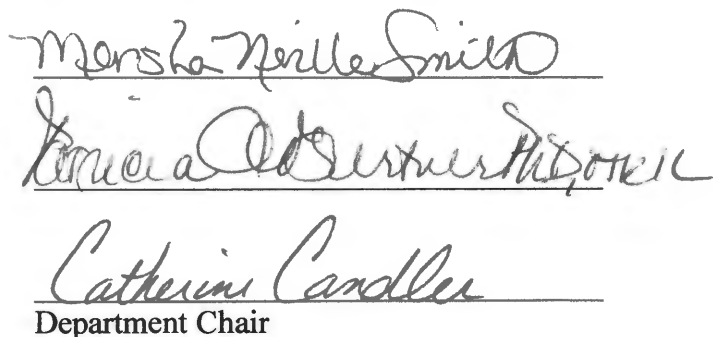 Marsha Neville Smith
PhD, OTR/L
Catherine Candler
Department Chair